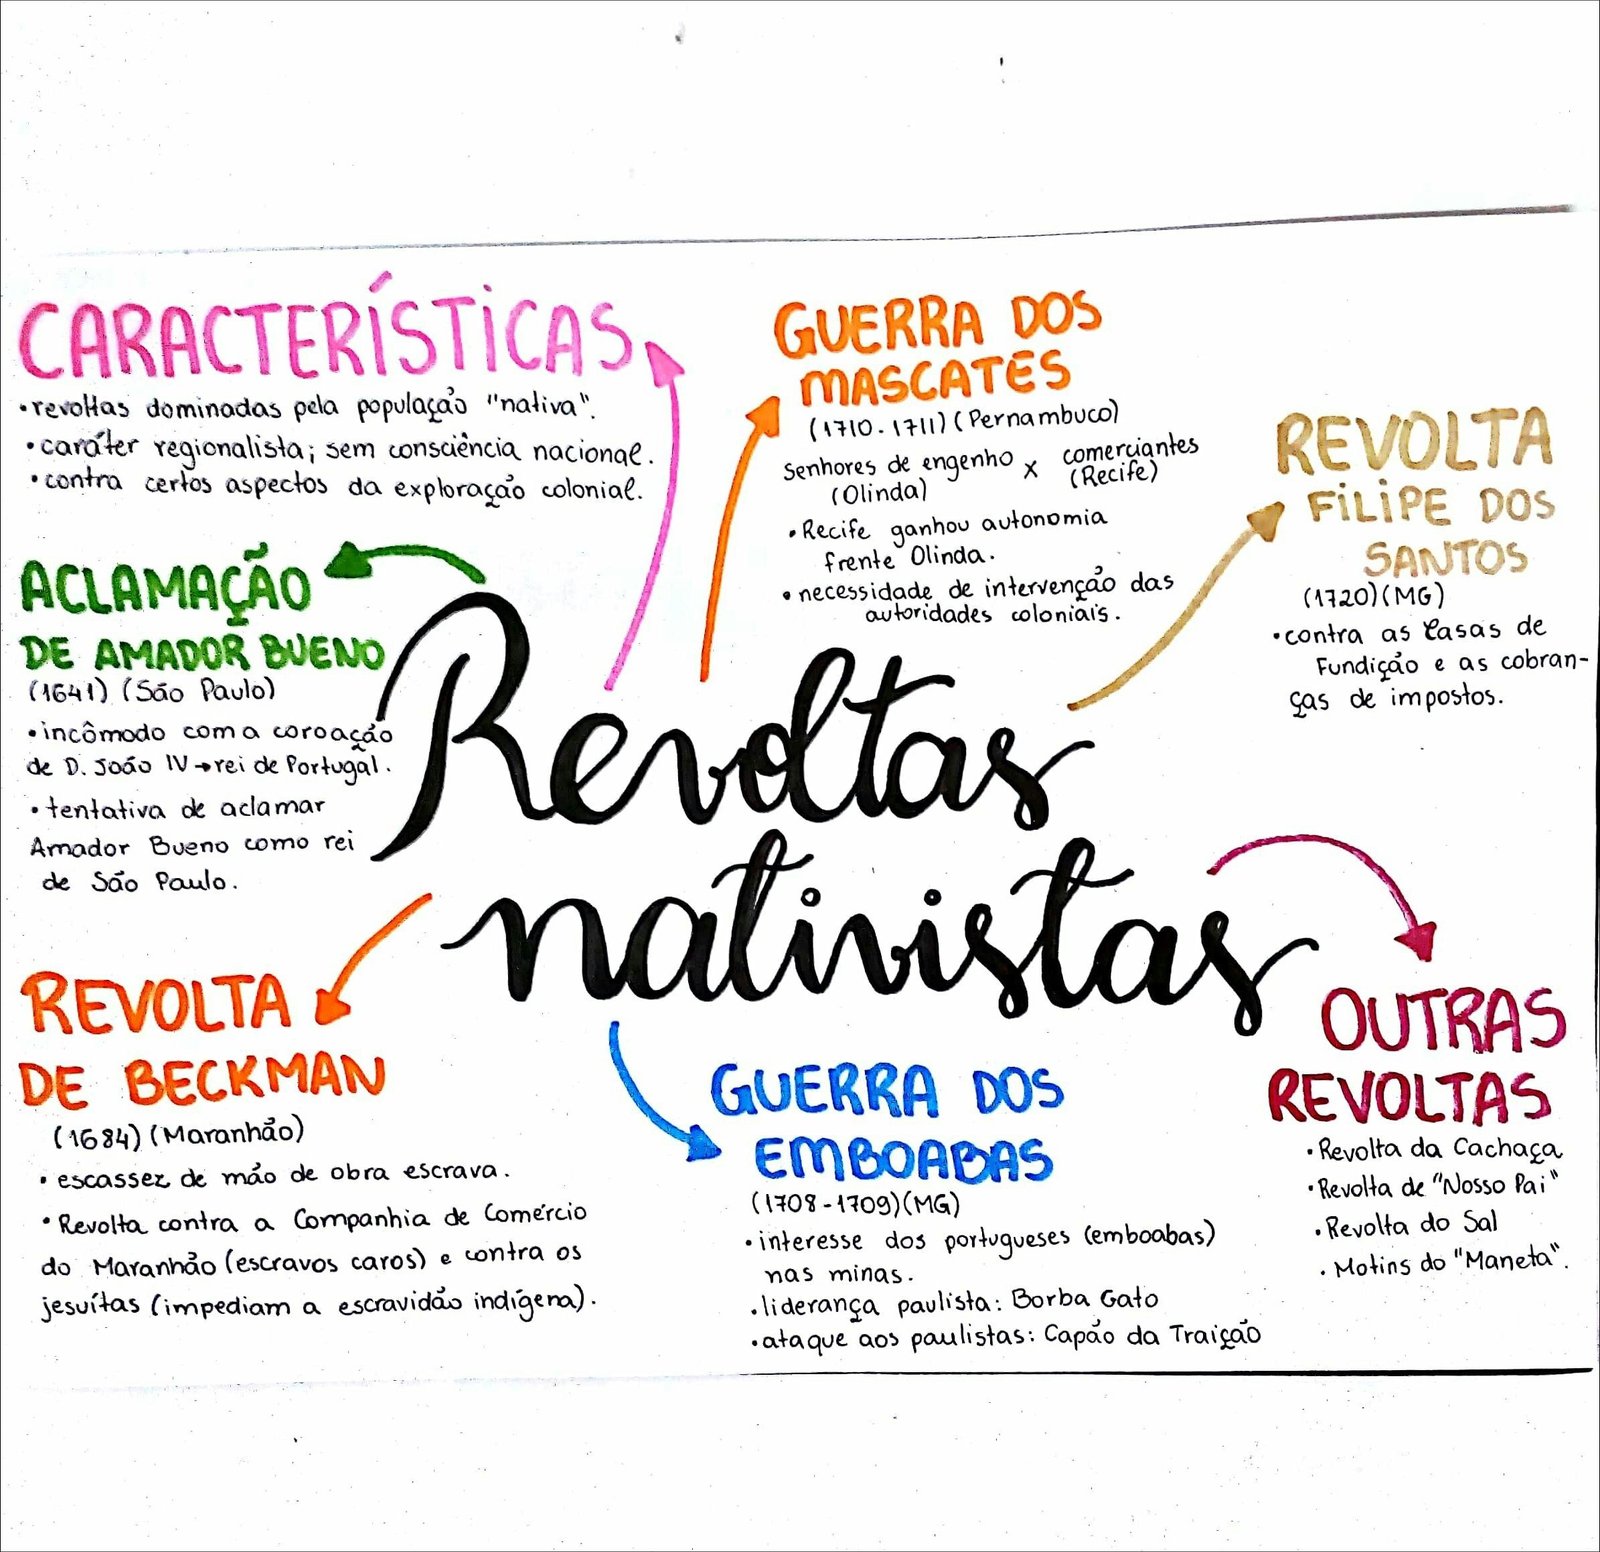 CARACTERÍSTICAS
•revoltas dominadas pela população "nativa".
•caráter regionalista; sem consciência nacional.
•contra certos aspectos da exploração colonial.
GUERRA DOS
MASCATES
(1710-1711) (Pernambuco)
senhores de engenho x comerciantes
(Olinda) (Recife)
•Recife ganhou autonomia
frente Olinda.
•necessidade de intervenção das
autoridades coloniais.
REVOLTA
FILIPE DOS
SANTOS
(1720) (MG)
•contra as Casas de
Fundição e as cobran-
ças de impostos.
ACLAMAÇÃO
DE AMADOR BUENO
(1641) (São Paulo)
•incômodo com a coroação
de D. João IV→rei de Portugal.
•tentativa de aclamar
Amador Bueno como rei
de São Paulo.
Revoltas
nativistas
REVOLTA
DE BECKMAN
(1684) (Maranhão)
•escassez de mão de obra escrava.
•Revolta contra a Companhia de Comércio
do Maranhão (escravos caros) e contra os
jesuítas (impediam a escravidão indígena).
GUERRA DOS
EMBOABAS
(1708-1709) (MG)
•interesse dos portugueses (emboabas)
nas minas.
•liderança paulista: Borba Gato
•ataque aos paulistas: Capão da Traição
OUTRAS
REVOLTAS
•Revolta da Cachaça
•Revolta de "Nosso Pai"
•Revolta do Sal
•Motins do "Maneta".